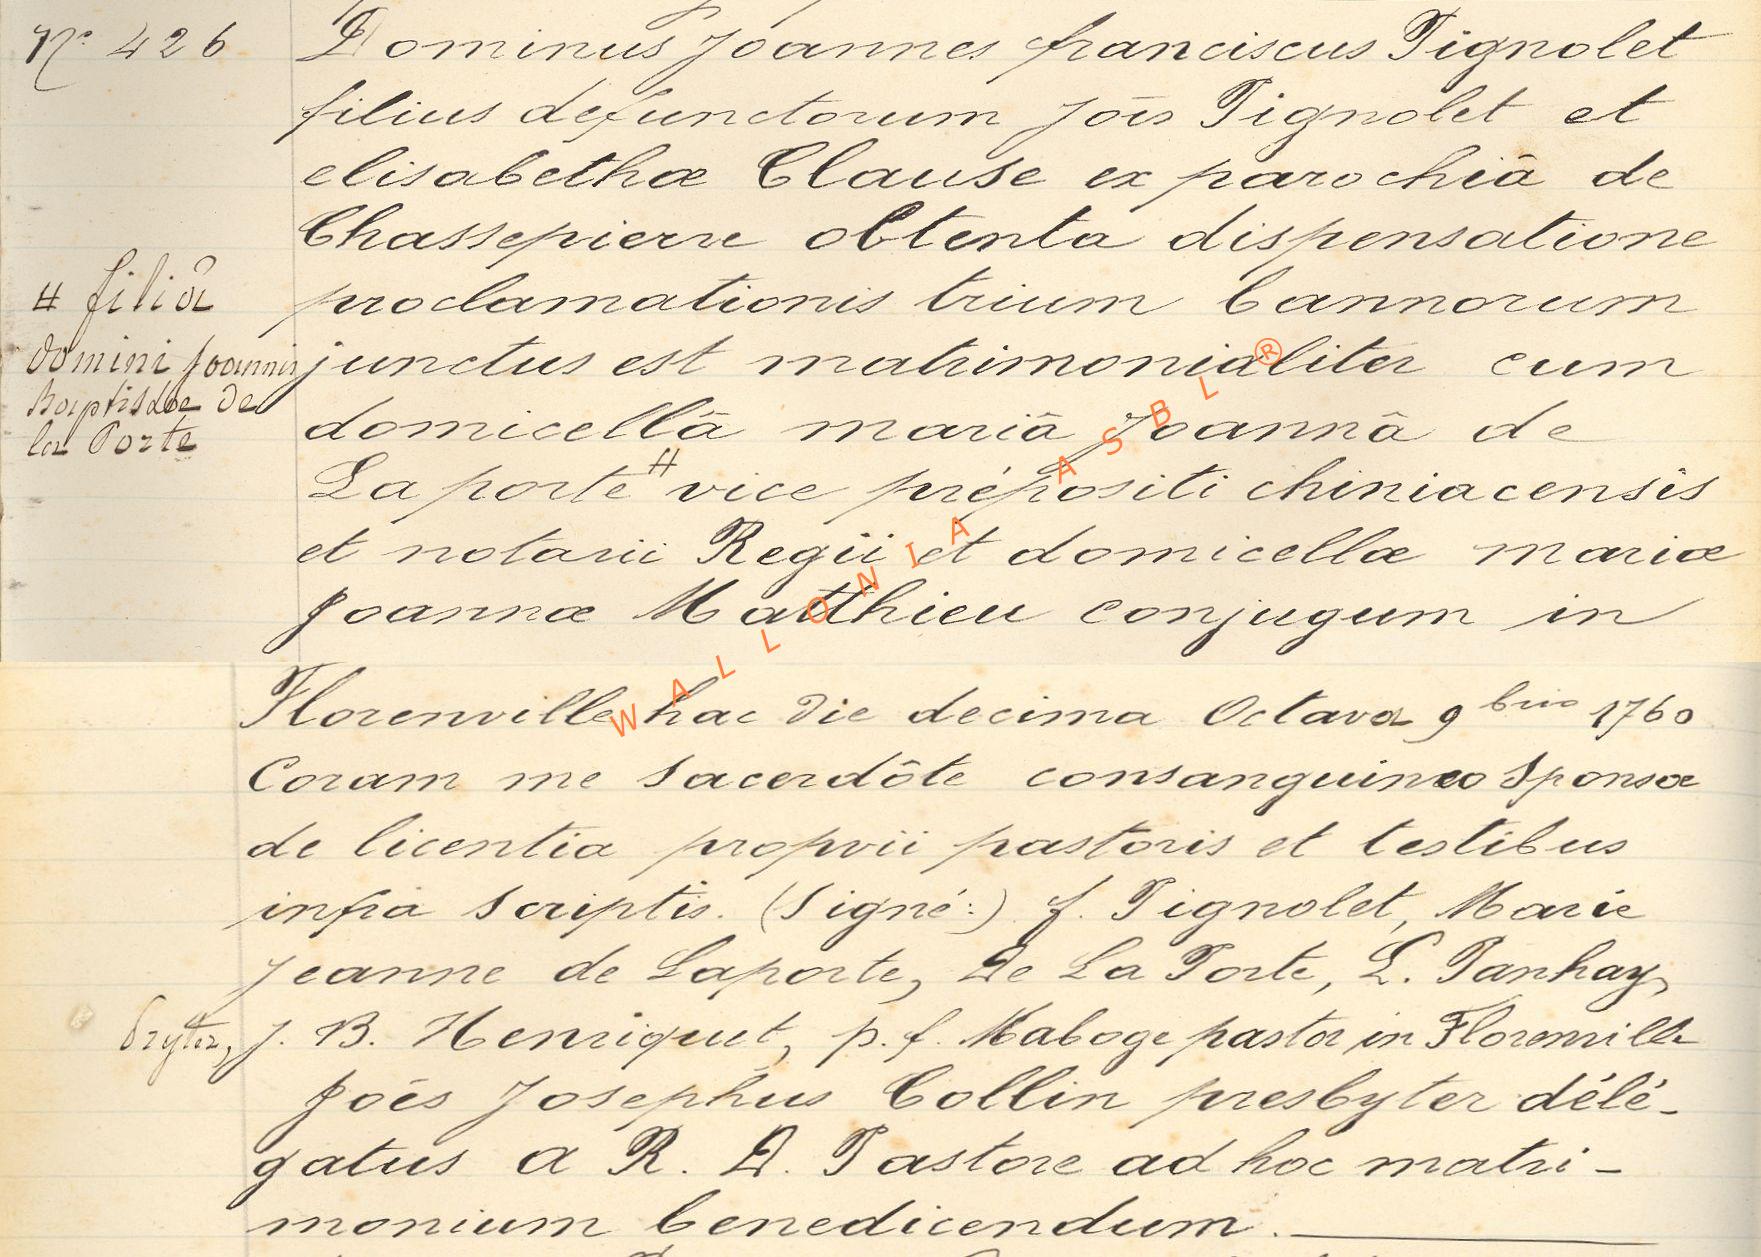 N° 426
Dominus Joannes franciscus Pignolet
filius defunctorum Jois Pignolet et
elisabethæ Clause ex parochiâ de
Chassepierre obtenta dispensatione
proclamationis trium bannorum
junctus est matrimonialiter cum
domicellâ mariâ Joannâ de
Laporte # vice prépositi chiniacensis
et notarii Regii et domicellæ mariæ
Joannæ Matthieu conjugum in
# filiâ
domini Joannis
Baptistæ de
la Porte
Florenville hac die decima Octava 9bris 1760
Coram me sacerdôte consanguineo Sponsæ
de licentia proprii pastoris et testibus
infra scriptis. (Signé:) f. Pignolet, Marie
Jeanne de Laporte, De La Porte, L. Panhay,
J. B. Henriquet, p. f. Maboge pastor in Florenville
Joës Josephus Collin presbyter délé-
gatus a R. D. Pastore ad hoc matri-
monium benedicendum.
WALLONIA ASBL ®